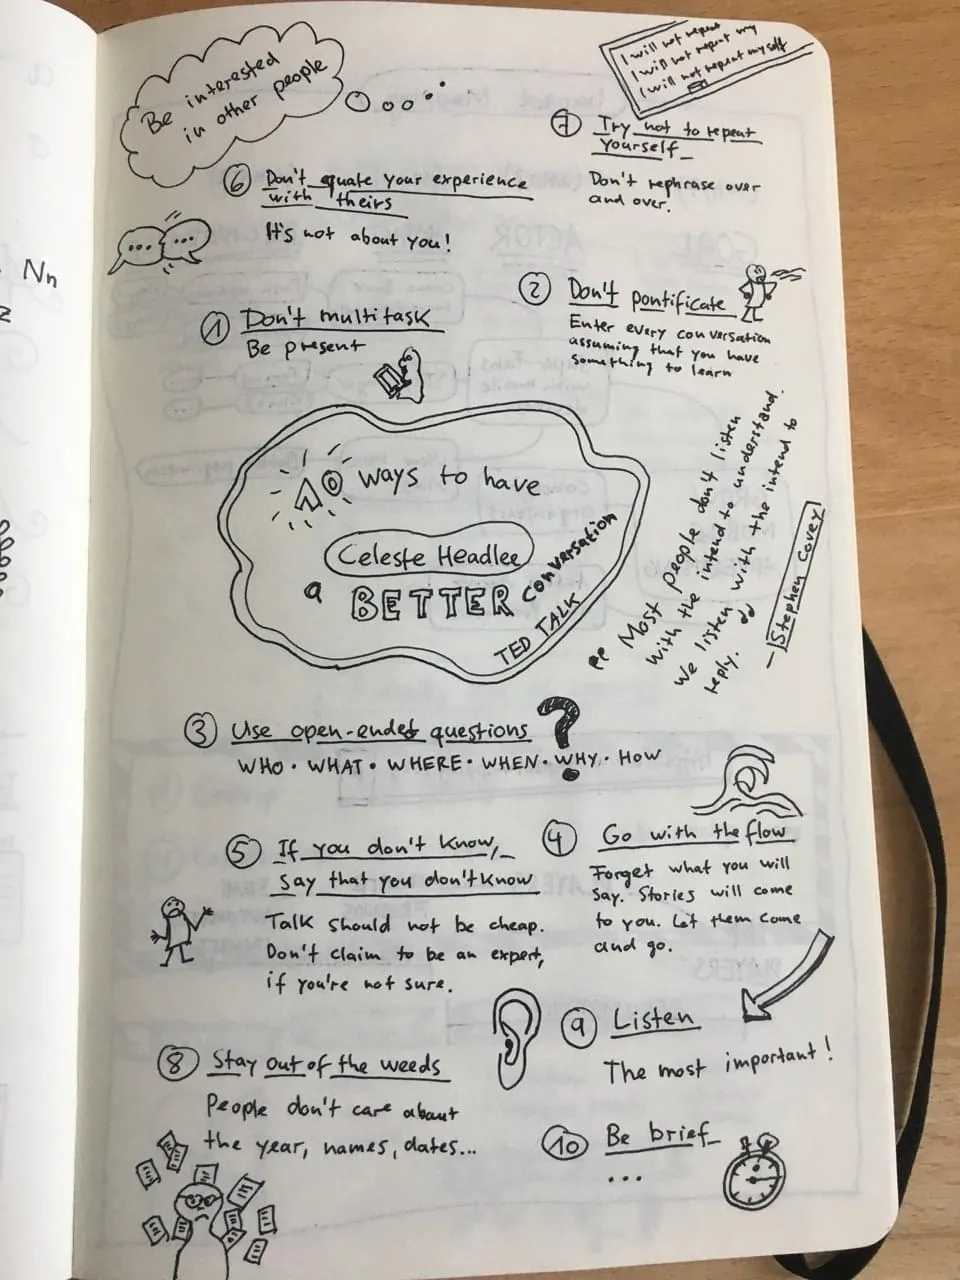 Be interested
in other people
I will not repeat
I will not repeat my
I will not repeat myself
7 Try not to repeat
yourself
Don't rephrase over
and over.
6 Don't equate your experience
with theirs
It's not about you!
Nn
2 Don't pontificate
Enter every conversation
assuming that you have
something to learn
1 Don't multitask
Be present
10 ways to have
Celeste Headlee
a BETTER conversation
TED TALK
"Most people don't listen
with the intend to understand.
We listen with the intend to
reply."
— Stephen Covey
3 Use open-ended questions ?
WHO · WHAT · WHERE · WHEN · WHY · HOW
5 If you don't know,
say that you don't know
Talk should not be cheap.
Don't claim to be an expert,
if you're not sure.
4 Go with the flow
Forget what you will
say. Stories will come
to you. Let them come
and go.
9 Listen
The most important!
8 Stay out of the weeds
People don't care about
the year, names, dates...
10 Be brief
...